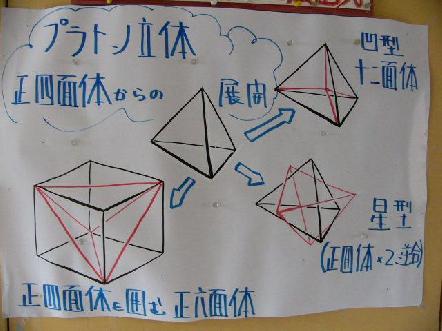 プラトノ立体
正四面体からの 展開
凹型
十二面体
星型
(正四体×2:逆)
正四面体を囲む 正六面体